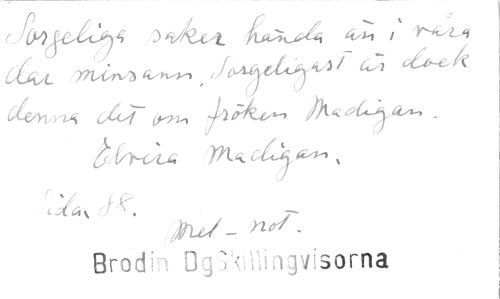 Sorgeliga saker hända än i våra
dar minsann, Sorgeligast är dock
denna det om fröken Madigan.
Elvira Madigan.
Sidan 88.
Mel - not.
Brodin DgSkillingvisorna